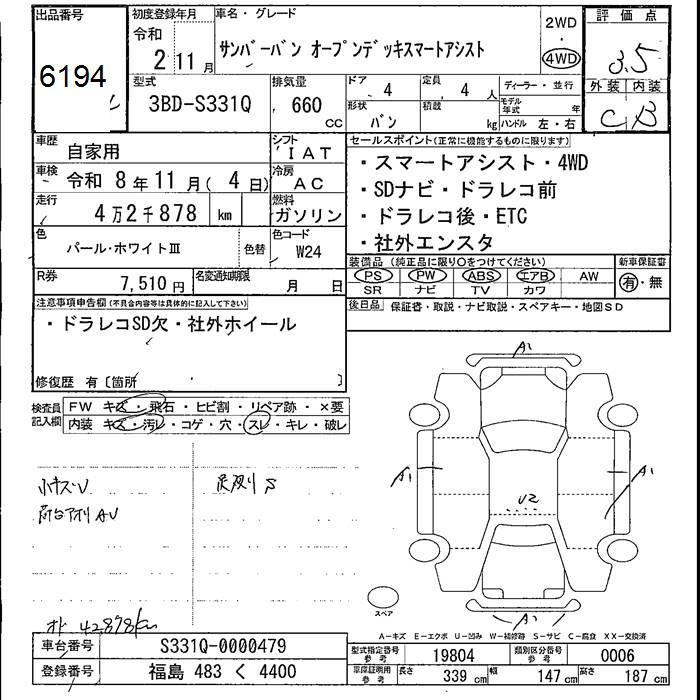 出品番号
6194
初度登録年月
令和
2 11月
車名・グレード
サンバーバン オープンデッキスマートアシスト
2WD
・
4WD
評価点
3.5
外装 内装
C B
型式
3BD-S331Q
排気量
660
CC
ドア
4
定員
4 人
ディーラー・並行
形状
バン
積載
kg
モデル年式
年
ハンドル 左・右
車歴
自家用
シフト
IAT
車検
令和 8年11月(4日)
冷房
AC
走行
4万2千878 km
燃料
ガソリン
色
パール・ホワイトⅢ
色替
色コード
W24
R券
7,510円
名変通知期限
月 日
セールスポイント(正常に機能するものに限ります)
・スマートアシスト・4WD
・SDナビ・ドラレコ前
・ドラレコ後・ETC
・社外エンスタ
装備品 (純正品に限り○をつけてください)
PS PW ABS エアB AW
SR ナビ TV カワ
新車保証書
有・無
後日品 保証書・取説・ナビ取説・スペアキー・地図SD
注意事項申告欄(不具合内容等は具体的に記入して下さい)
・ドラレコSD欠・社外ホイール
修復歴 有〔箇所 〕
検査員記入欄
FW キズ・飛石・ヒビ割・リペア跡・×要
内装 キズ・汚レ・コゲ・穴・スレ・キレ・破レ
小キズU
荷台アオリAU
オド 42878km
A1
A1
A1
U2
A1
スペア
A-キズ E-エクボ U-凹み W-補修跡 S-サビ C-腐食 XX-交換済
車台番号
S331Q-0000479
登録番号
福島 483 く 4400
型式指定番号
参考
19804
類別区分番号
参考
0006
車庫証明用
参考
長さ
339 cm
幅
147 cm
高さ
187 cm